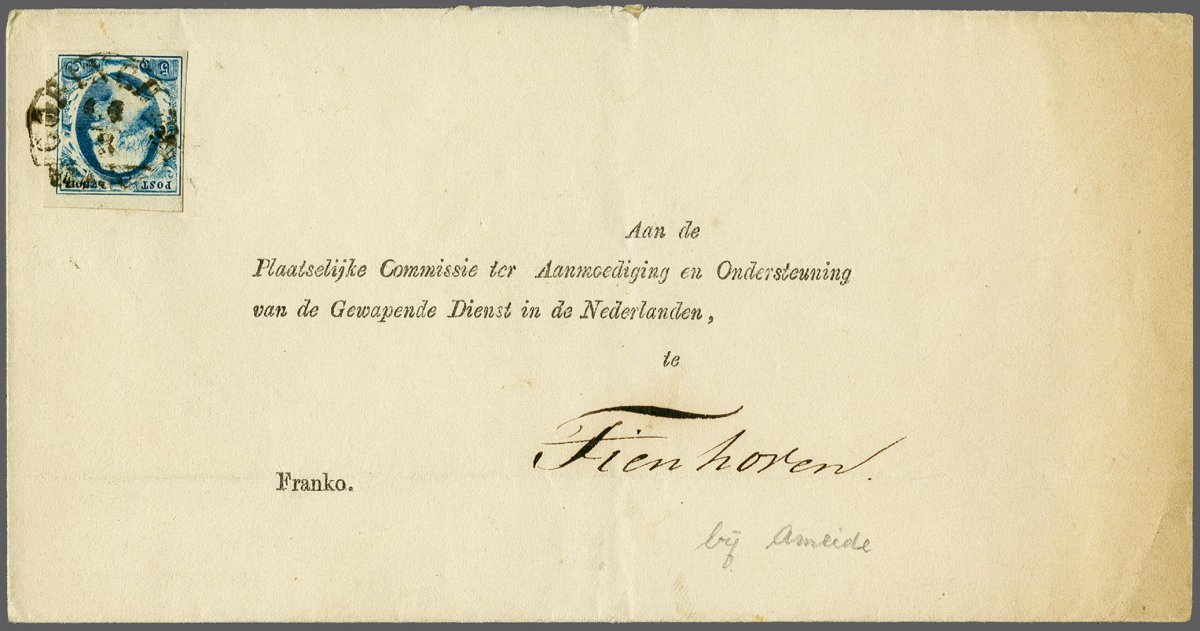 Aan de
Plaatselijke Commissie ter Aanmoediging en Ondersteuning
van de Gewapende Dienst in de Nederlanden,
te
Tienhoven.
Franko.
bij Ameide
5 C
POST